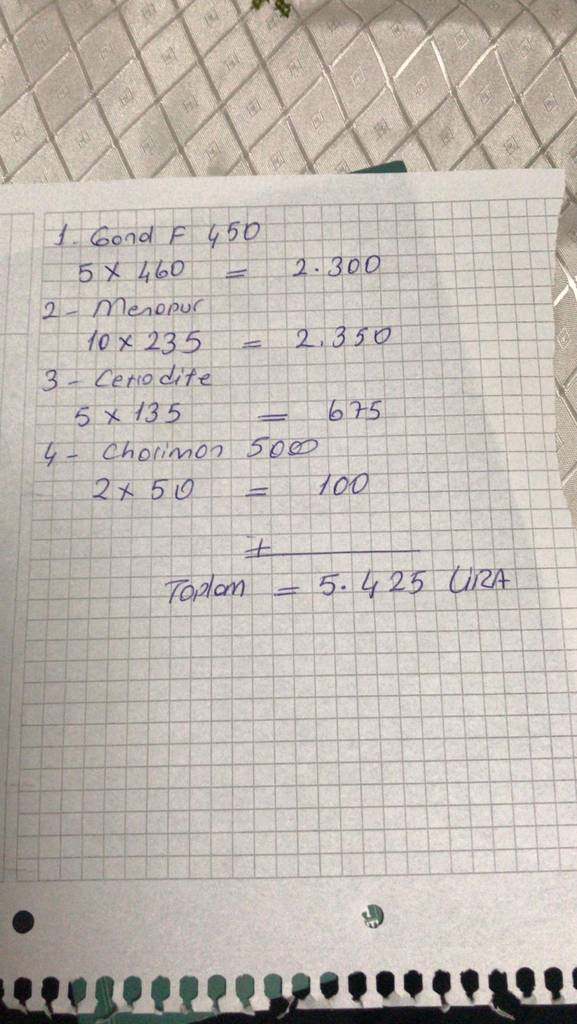 1. Gonal F 450
5 x 460 = 2.300
2 - Menopur
10 x 235 = 2.350
3 - Cetrodite
5 x 135 = 675
4 - Chorimon 5000
2 x 50 = 100
+
Toplam = 5.425 LİRA